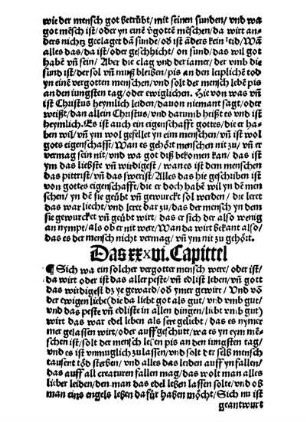 wie der mensch got betrübt/ mit seinen sunden/ vnd wa
got mẽsch ist/ oder yn eine võgottẽ mẽschen/ da wirt an-
ders nichtz geclaget dã sunde/ oß ist ãders kein leid/ Wã
alles das/ da ist/ oder geschicht/ on sund/ das wil got
habẽ vñ sein/ Aber die clag vnd der iamer/ der vmb die
sund ist/ der sol vñ muß bleiben/ pis an den leiplichẽ tod/
yn einẽ vergotten menschen/ vnd solt der mensch lebẽ pis
an den iungsten tag/ oder ewiglich/ Hie von was vñ
ist Christus heymlich leiden/ dauon niemant sagt/ oder
weißt/ dan allein Christus/ vnd darumb heißt es vnd ist
heymlich. Es ist auch ein eigenschafft gottes/ die er ha-
ben wil/ vñ ym wol gefellet yn eim menschen/ vñ ist wol
gots eigenschafft/ Wan es gehört menschen nit zu/ vñ er
vermag sein nit/ vnd wa got diß bekomen kan/ das ist
yn das liebst vñ wirdigest/ wan es ist dem menschen
das pitterst/ vñ das swerist/ Alles das hie geschriben ist
von gottes eigenschafft/ die er doch haben wil yn dẽ men-
schen/ yn dẽ sie geübt vñ gewurckt sol werden/ die lerẽ
das war liecht/ vnd leret dar zu/ das der mensch/ yn dem
sie gewurcket vñ geübt wirt/ das er sich der also wenig
an nympt/ als ob er nit were/ Wan da wirt bekant also/
das es der mensch nicht vermag/ vñ ym nit zu gehört.
Das xxxvi. Capittel
Sich wa ein solcher vergotter mensch were/ oder ist/
da wirt oder ist das aller peste/ vñ edlist leben/ vñ gott
das wirdigest dz ye geward/ oß ymer gewer/ Vnd võ
der ewigen liebe (die da liebt got als gut/ vnd vmb gut/
vnd das peste vñ edliste in allen dingen/ liebt vmb gut)
wirt das war edel leben als ser geliebt/ das es nymer
mer gelassen wirt/ oder auff geschutt/ wa es yn eym mẽ-
schen ist/ solt der mẽsch lebẽ pis an den iungsten tag/
vnd es ist vnmuglich zulassen/ vnd solt der selb mensch
tausent töd sterben/ vnd alles das leiden auff yn fallen/
das auff al creaturen fallen mag/ das wolt man alles
lieber leiden/ den man das edel lebẽ lassen solte/ vnd ob
man eins angels lebẽ dafür haben möcht/ Sich nu ist
geantwurt